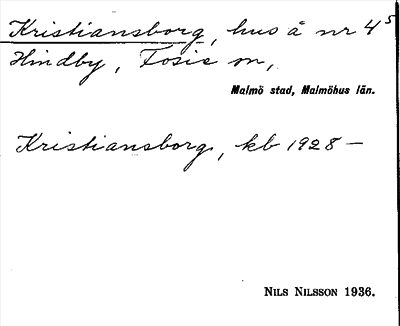 Kristiansborg, hus å nr 4⁵
Hindby, Fosie sn,
Malmö stad, Malmöhus län.
Kristiansborg, kb 1928 —
NILS NILSSON 1936.